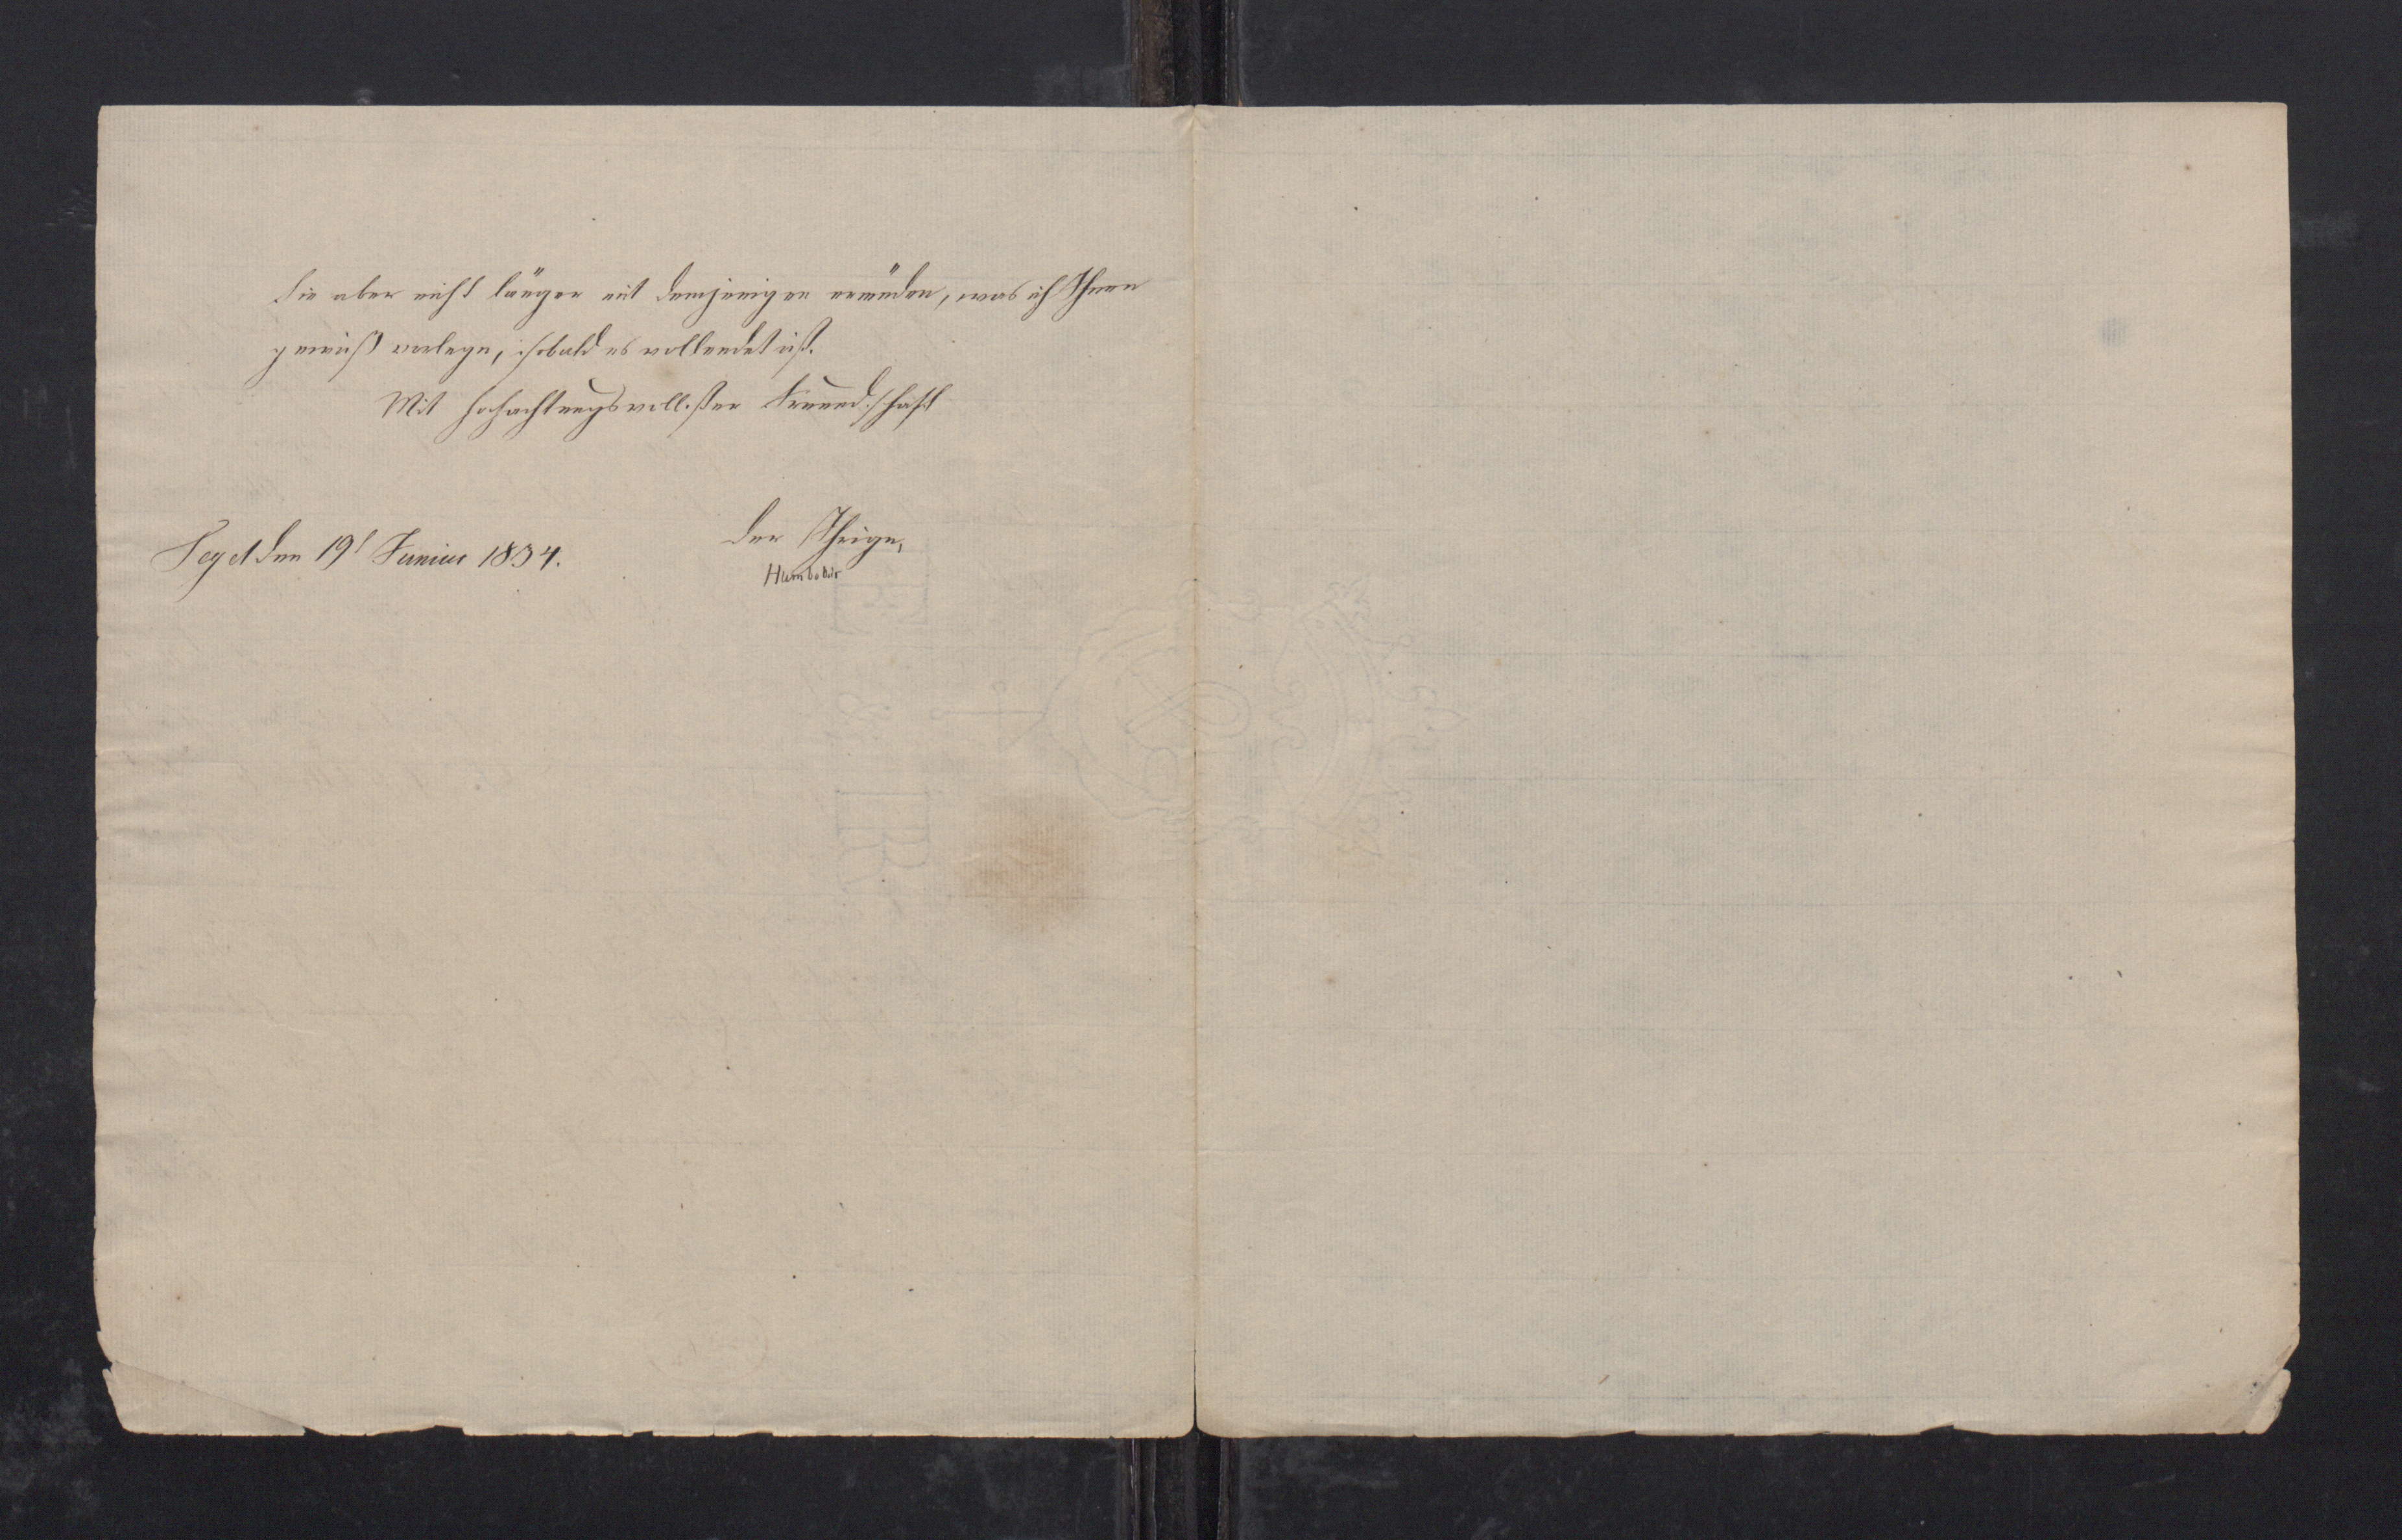 Sie aber nicht länger mit demjenigen ermüden, was ich Ihnen
gewiß vorlege, sobald es vollendet ist.
Mit hochachtungsvollster Freundschaft
der Ihrige,
Tegel den 19t Junius 1834.
Humboldt